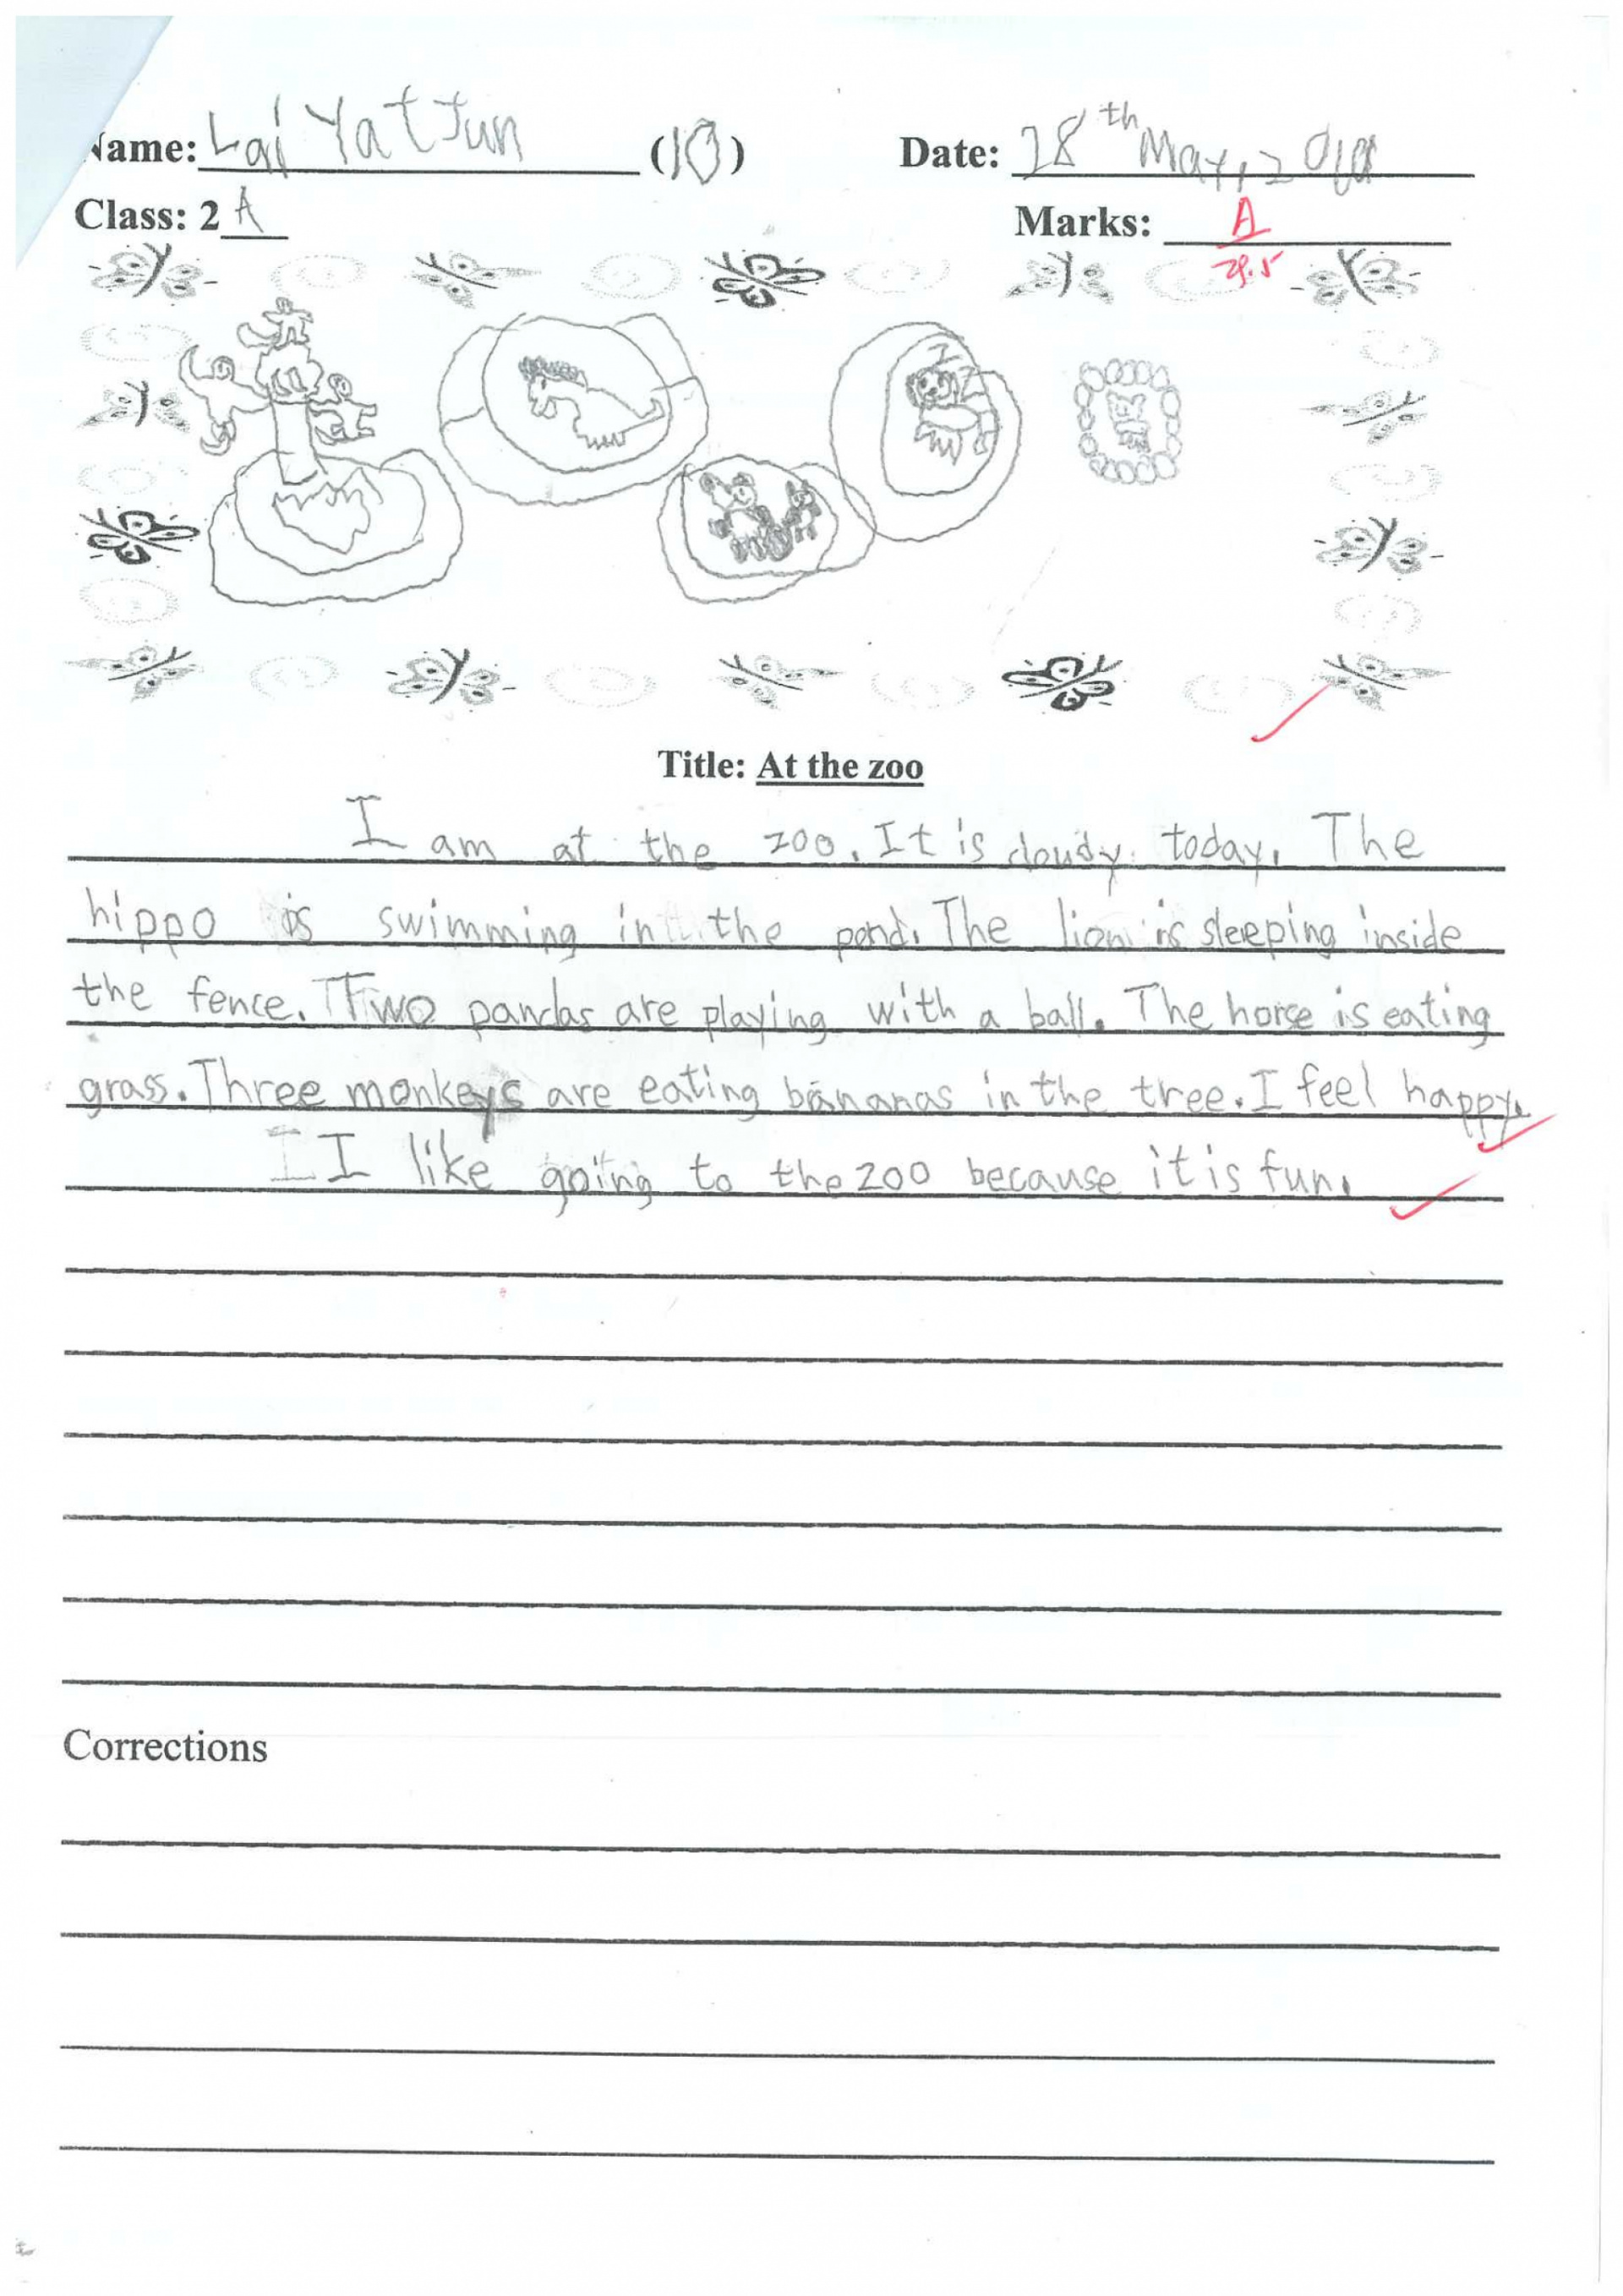 Name: Lai Yat Jun (10) Date: 28th May, 201
Class: 2 A Marks: A
29.5
Title: At the zoo
I am at the zoo. It is cloudy today. The
hippo is swimming in the pond. The lion is sleeping inside
the fence. Two pandas are playing with a ball. The horse is eating
grass. Three monkeys are eating bananas in the tree. I feel happy.
I like going to the zoo because it is fun.
Corrections